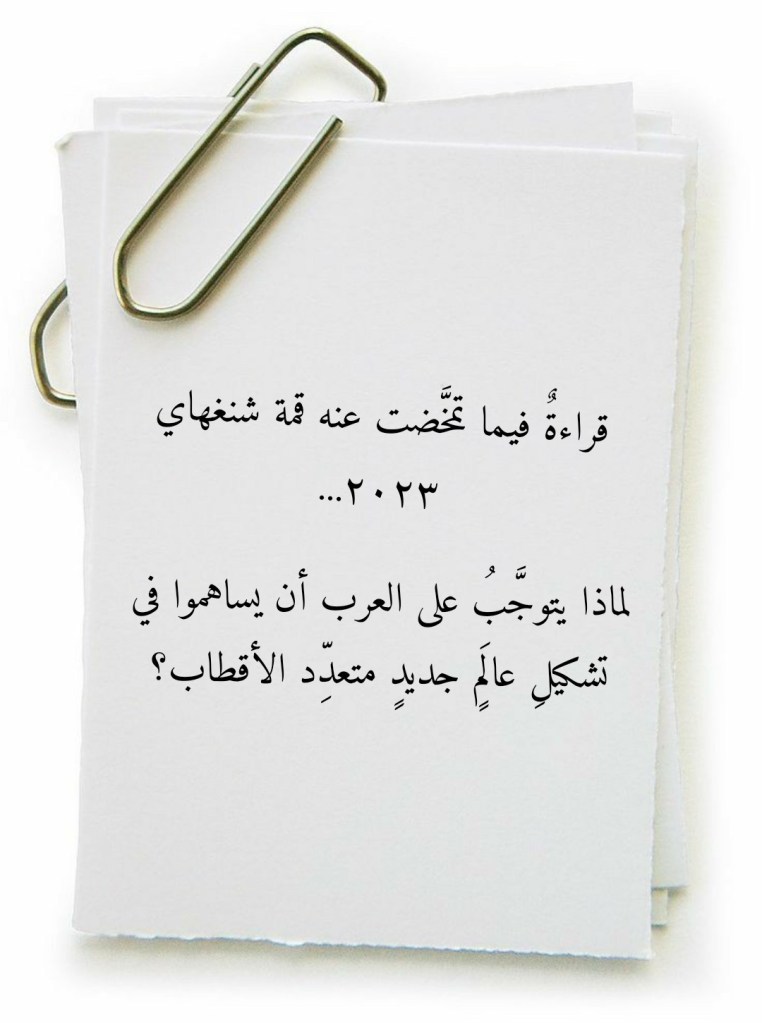 قراءةٌ فيما تمخَّضت عنه قمة شنغهاي
٢٠٢٣...
لماذا يتوجَّبُ على العرب أن يساهموا في
تشكيلِ عالَمٍ جديدٍ متعدِّد الأقطاب؟